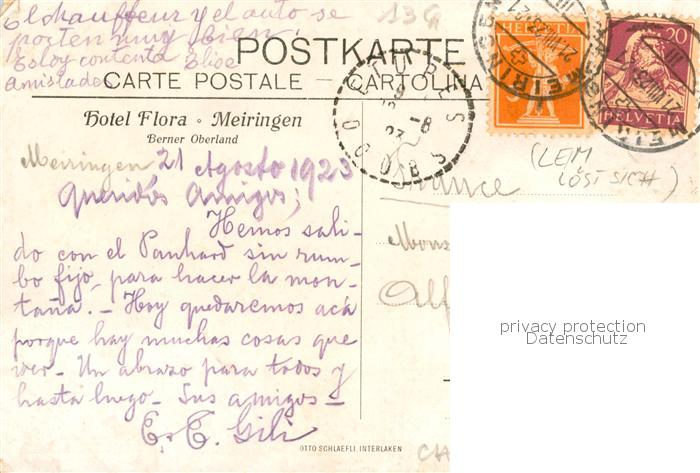 El chauffeur y el auto se
porten muy bien!
Estoy contenta Elise
amistades
13 G
POSTKARTE
CARTE POSTALE — CARTOLINA
Hotel Flora • Meiringen
Berner Oberland
Meiringen 21 Agosto 1923
Queridos Amigos;
Hemos sali-
do con el Panhard sin rum-
bo fijo, para hacer la mon-
taña. - Hoy quedaremos acá
porque hay muchas cosas que
ver. - Un abrazo para todos y
hasta luego. - Sus amigos -
E. E. Gili
DOUBS
-8
HELVETIA
MEIRINGEN
21.VIII.23
20
HELVETIA
MEIRINGEN
(LEIM
LÖST SICH)
France
Mons
Alf
privacy protection
Datenschutz
OTTO SCHLAEFLI, INTERLAKEN